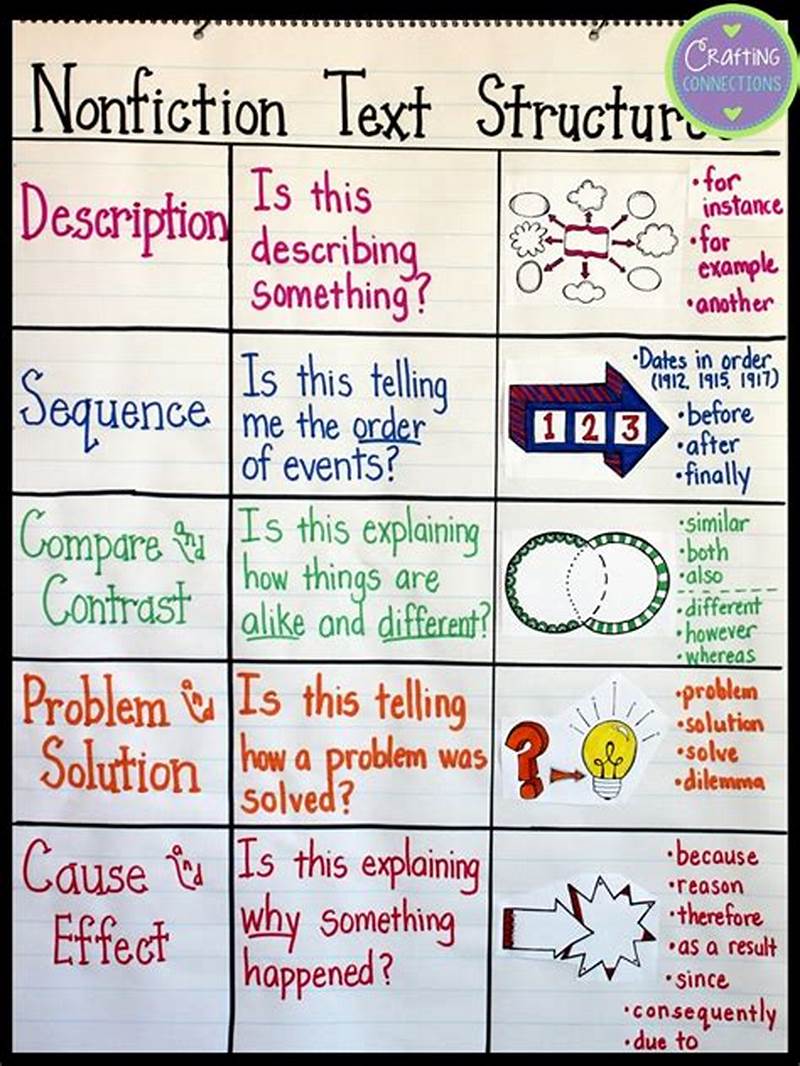 Crafting
CONNECTIONS
Nonfiction Text Structure
Description
Is this
describing
something?
• for
instance
• for
example
• another
Sequence
Is this telling
me the order
of events?
1 2 3
• Dates in order
(1912, 1915, 1917)
• before
• after
• finally
Compare and
Contrast
Is this explaining
how things are
alike and different?
• similar
• both
• also
• different
• however
• whereas
Problem and
Solution
Is this telling
how a problem was
solved?
?
• problem
• solution
• solve
• dilemma
Cause and
Effect
Is this explaining
why something
happened?
• because
• reason
• therefore
• as a result
• since
• consequently
• due to